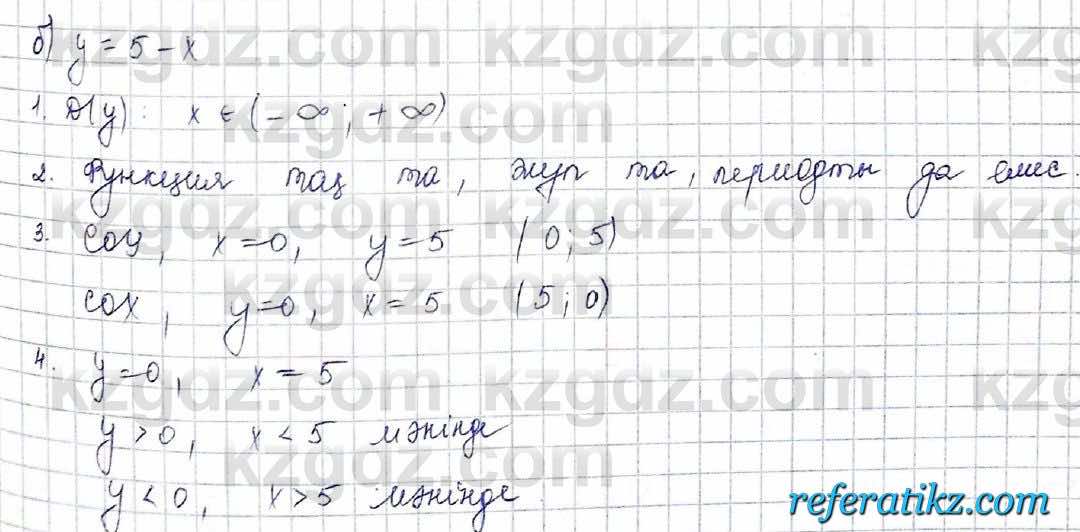 б) y = 5 - x
1. D(y): x ∈ (-∞; +∞)
2. Функция тақ та, жұп та, периодты да емес.
3. COY, x=0, y=5 (0; 5)
COX, y=0, x=5 (5; 0)
4. y=0, x=5
y>0, x<5 мәнінде
y<0, x>5 мәнінде
kzgdz.com
referatikz.com